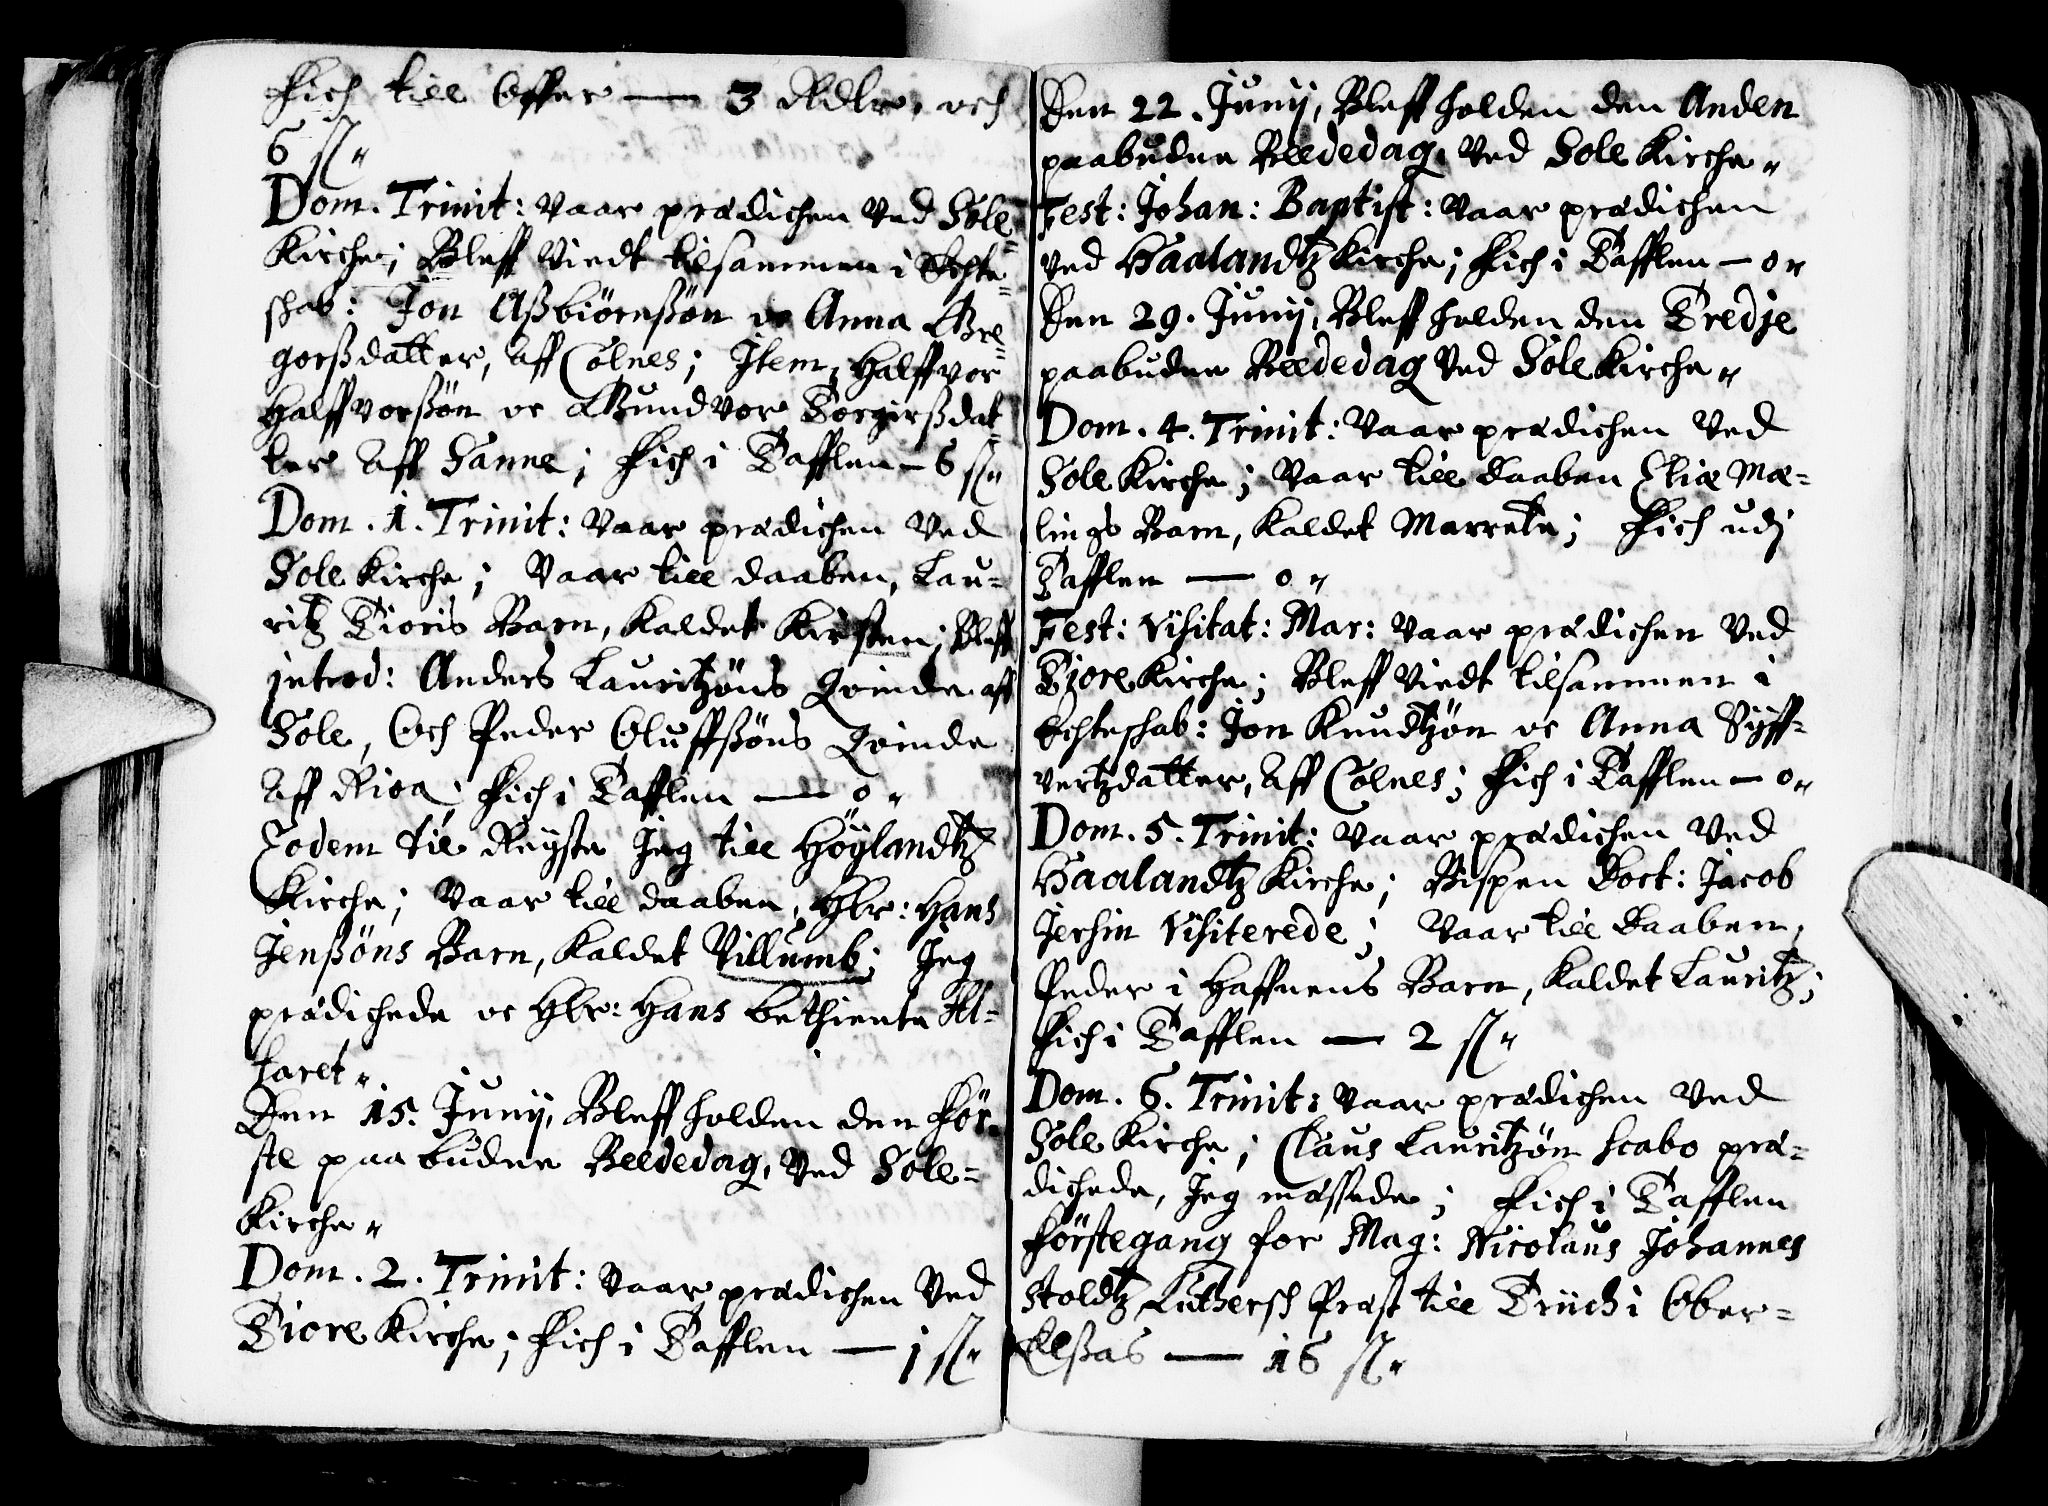 Fich till Offer — 3 Rdlr, och
6 sl"
Dom. Trinit: vaar prædichen ved Sole
Kirche; Bleff Viedt tilsammen i Echte=
schab: Jon Aßbiörnßön oc Anna Gre=
gorßdatter, aff Colnes; Item, Halffvor
Halffvorßön oc Gundvor Torgirßdat=
ter aff Sanne; Fich i Tafflen — 6 sl"
Dom. 1. Trinit: vaar prædichen ved
Sole Kirche; Vaar till daaben, Lau=
ritz Tioris Barn, kaldet Kirsten; Bleff
introd: Anders Lauritzöns Qvinde aff
Sole, Och Peder Oluffßöns Qvinde
aff Risa; Fich i Tafflen — 0 "
Eodem die Reyste Jeg till Höylandtz
Kirche; Vaar till daaben, Hlr: Hans
Jenßöns Barn, kaldet Villumb; Jeg
prædichede oc Hlr: Hans bethiente Al=
taret "
Den 15. Junij, Bleff holden den För=
ste paabudne Beededag, ved Sole=
Kirche "
Dom. 2. Trinit: vaar prædichen ved
Tiore Kirche; Fich i Tafflen — 1 sl"
Den 22. Junij, Bleff holden den Anden
paabudne Beededag, ved Sole Kirche "
Fest: Johan: Baptist: vaar prædichen
ved Haalandtz Kirche; Fich i Tafflen — 0 "
Den 29. Junij, Bleff holden den Tredje
paabudne Beededag ved Sole Kirche "
Dom. 4. Trinit: vaar prædichen ved
Sole Kirche; Vaar till daaben Eliæ Mæ=
lings Barn, kaldet Marrete; Fich udj
Tafflen — 0 "
Fest: Visitat: Mar: vaar prædichen ved
Tjore Kirche; Bleff Viedt tilsammen i
Echteschab: Jon Knudtzön oc Anna Syff=
vertzdatter, aff Colnes; Fich i Tafflen — 0 "
Dom. 5. Trinit: vaar prædichen ved
Haalandtz Kirche; Bispen Doct: Jacob
Jersin Visiterede; Vaar till daaben,
Peder i Haffnens Barn, kaldet Lauritz;
Fich i Tafflen — 2 sl"
Dom. 6. Trinit: vaar prædichen ved
Sole Kirche; Claus Lauritzön Scabo præ=
dichede, Jeg messede; Fich i Tafflen
förstegang for Mag: Nicolaus Johannes
Stoldtz Luthersch Præst till Trüch i Ober=
Elßas — 16 sl"